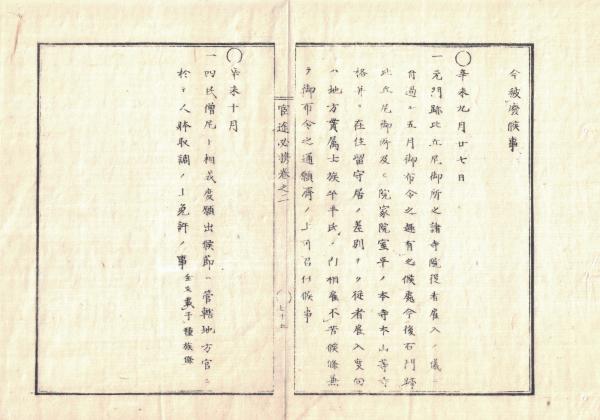 今被廃候事
◯辛未九月廿七日
一元門跡比丘尼御所之諸寺院従者雇入ノ儀ニ
付過ル五月御布令之趣有之候処今後右門跡
比丘尼御所及ヒ院家院室平ノ本寺本山等寺
格并ニ在住留守居ノ差別ナク従者雇入度向
ハ地方貫属士族卒平民ノ内相雇不苦候條兼
テ御布令之通願済ノ上可召仕候事
官途必携巻之二
七十五
◯辛未十月
一四民僧尼ト相成度願出候節ハ管轄地方官ニ
於テ人体取調ノ上免許ノ事 全文載于種族條